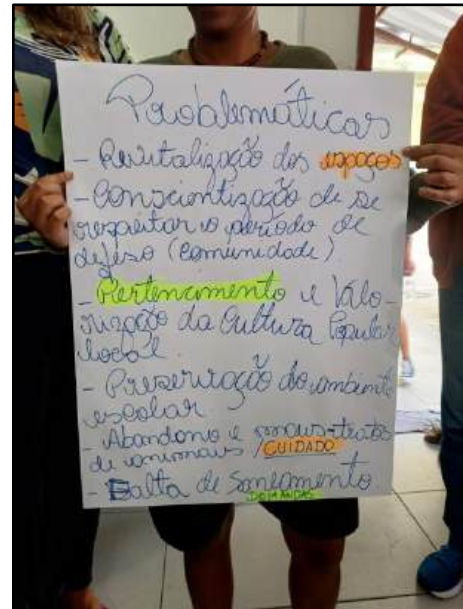 Problemáticas
- Revitalização dos espaços
- Conscientização de se
respeitar o período de
defeso (comunidade)
- Pertencimento e Valo-
rização da Cultura Popular
local.
- Preservação do ambiente
escolar.
- Abandono e maus-tratos
de animais / CUIDADO
- Falta de Saneamento.
DEMANDAS